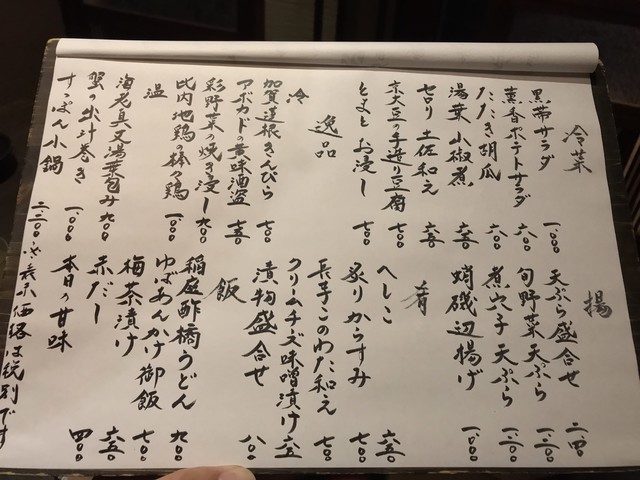 冷菜
黒帯サラダ 一、〇〇〇
薫香ポテトサラダ 六〇〇
たたき胡瓜 六〇〇
湯葉山椒煮 六五〇
セロリ土佐和え 六五〇
京大豆の手造り豆腐 七〇〇
とまとお浸し 七〇〇
逸品
冷
加賀蓮根きんぴら 七〇〇
アボカドの黄味酒盗 七五〇
彩野菜の焼き浸し 九〇〇
比内地鶏の棒々鶏 一、〇〇〇
温
海老真丈湯葉包み 九〇〇
蟹の出汁巻き 一、〇〇〇
すっぽん小鍋 二、二〇〇
揚
天ぷら盛合せ
旬野菜天ぷら 一、二〇〇
煮穴子天ぷら 一、二〇〇
蛸磯辺揚げ 一、〇〇〇
肴
へしこ 六五〇
炙りからすみ 七〇〇
長芋このわた和え 七〇〇
クリームチーズ味噌漬け 六五〇
漬物盛合せ 八〇〇
飯
稲庭酢橘うどん 九〇〇
ゆばあんかけ御飯 七〇〇
梅茶漬け 六五〇
赤だし 四〇〇
本日の甘味
※表示価格は税別です